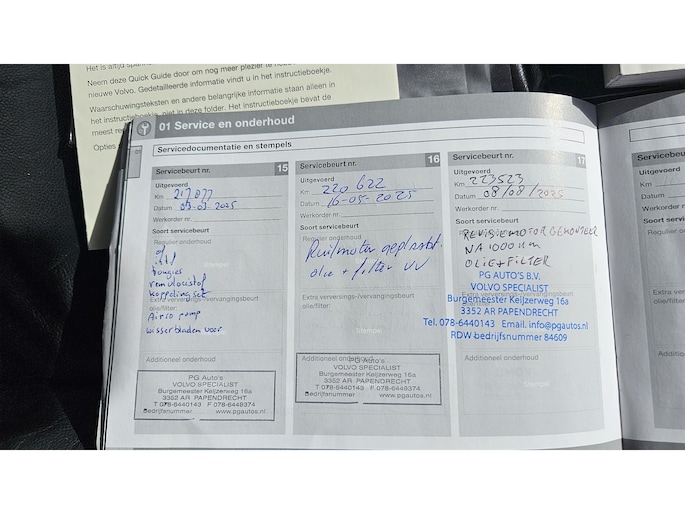 Neem deze Quick Guide door om nog meer plezier te
nieuwe Volvo. Gedetailleerde informatie vindt u in het instructieboekje.
Waarschuwingsteksten en andere belangrijke informatie staan alleen in
het instructieboekje, niet in deze folder. Het instructieboekje bevat de
meest
Opties
01 Service en onderhoud
Servicedocumentatie en stempels
Servicebeurt nr. 15
Uitgevoerd
Km 217077
Datum 03-03-2025
Werkorder nr.
Soort servicebeurt
Regulier onderhoud
bougies
remvloeistof
koppelingset
Extra verversings-/vervangingsbeurt
olie/filter:
Airco pomp
wisserbladen voor
Additioneel onderhoud
PG Auto's
VOLVO SPECIALIST
Burgemeester Keijzerweg 16a
3352 AR PAPENDRECHT
T 078-6440143 F 078-6449374
Bedrijfsnummer www.pgautos.nl
Servicebeurt nr. 16
Uitgevoerd
Km 220622
Datum 16-05-2025
Werkorder nr.
Soort servicebeurt
Regulier onderhoud
Ruilmotor geplaatst
olie + filter VV
Extra verversings-/vervangingsbeurt
olie/filter:
Stempel
Additioneel onderhoud
PG Auto's
VOLVO SPECIALIST
Burgemeester Keijzerweg 16a
3352 AR PAPENDRECHT
T 078-6440143 F 078-6449374
Bedrijfsnummer www.pgautos.nl
Servicebeurt nr. 17
Uitgevoerd
Km 223523
Datum 08/08/2025
Werkorder nr.
Soort servicebeurt
REVISIEMOTOR GEMONTEER
NA 1000 km
OLIE+FILTER
PG AUTO'S B.V.
VOLVO SPECIALIST
Burgemeester Keijzerweg 16a
3352 AR PAPENDRECHT
Tel. 078-6440143 Email. info@pgautos.nl
RDW bedrijfsnummer 84609
Additioneel onderhoud
Stempel
Servicebeurt
Uitgevoerd
Km
Datum
Werkorder nr.
Soort service
Regulier onderh
Extra ververs
olie/filter:
Additionee